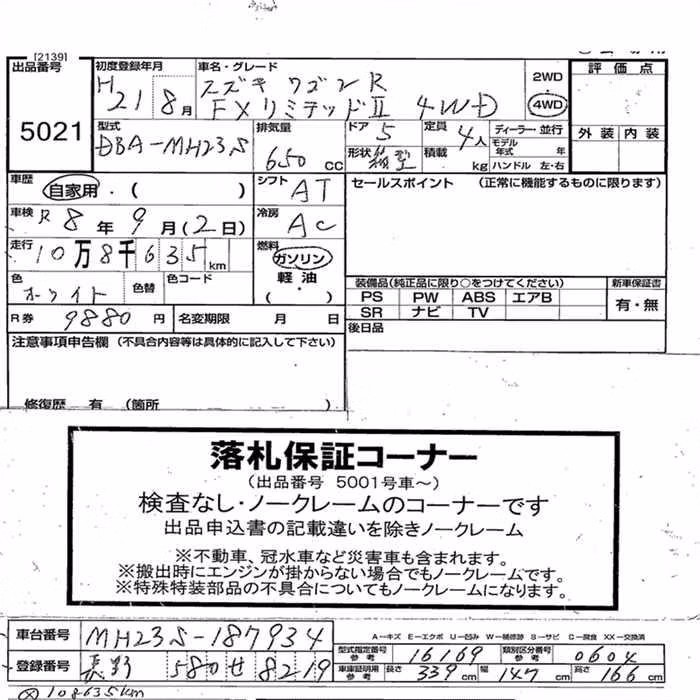 [2139]
出品番号 5021
初度登録年月 H21 8月
車名・グレード スズキ ワゴンR
FXリミテッドⅡ 4WD
2WD
4WD
評価点
外装 内装
型式 DBA-MH23S
排気量 650 cc
ドア 5
形状 箱型
定員 4人
積載 kg
ディーラー・並行
モデル年式 年
ハンドル 左・右
車歴 自家用・( )
シフト AT
セールスポイント (正常に機能するものに限ります)
車検 R8年9月(2日)
冷房 AC
走行 10万8千635km
燃料 ガソリン
軽油
( ・ )
色 ホワイト 色替 色コード
装備品(純正品に限り○をつけてください)
PS PW ABS エアB
SR ナビ TV
新車保証書
有・無
R券 9880円 名変期限 月 日
後日品
注意事項申告欄 (不具合内容等は具体的に記入して下さい)
修復歴 有 (箇所 )
落札保証コーナー
(出品番号 5001号車~)
検査なし・ノークレームのコーナーです
出品申込書の記載違いを除きノークレーム
※不動車、冠水車など災害車も含まれます。
※搬出時にエンジンが掛からない場合でもノークレームです。
※特殊特装部品の不具合についてもノークレームになります。
車台番号 MH23S-187934
A-キズ E-エクボ U-凹み W-補修跡 S-サビ C-腐食 XX-交換済
型式指定番号参考 16169 類別区分番号参考 0604
登録番号 長野 580 せ 8219
車庫証明用参考 長さ 339cm 幅 147cm 高さ 166cm
108635km